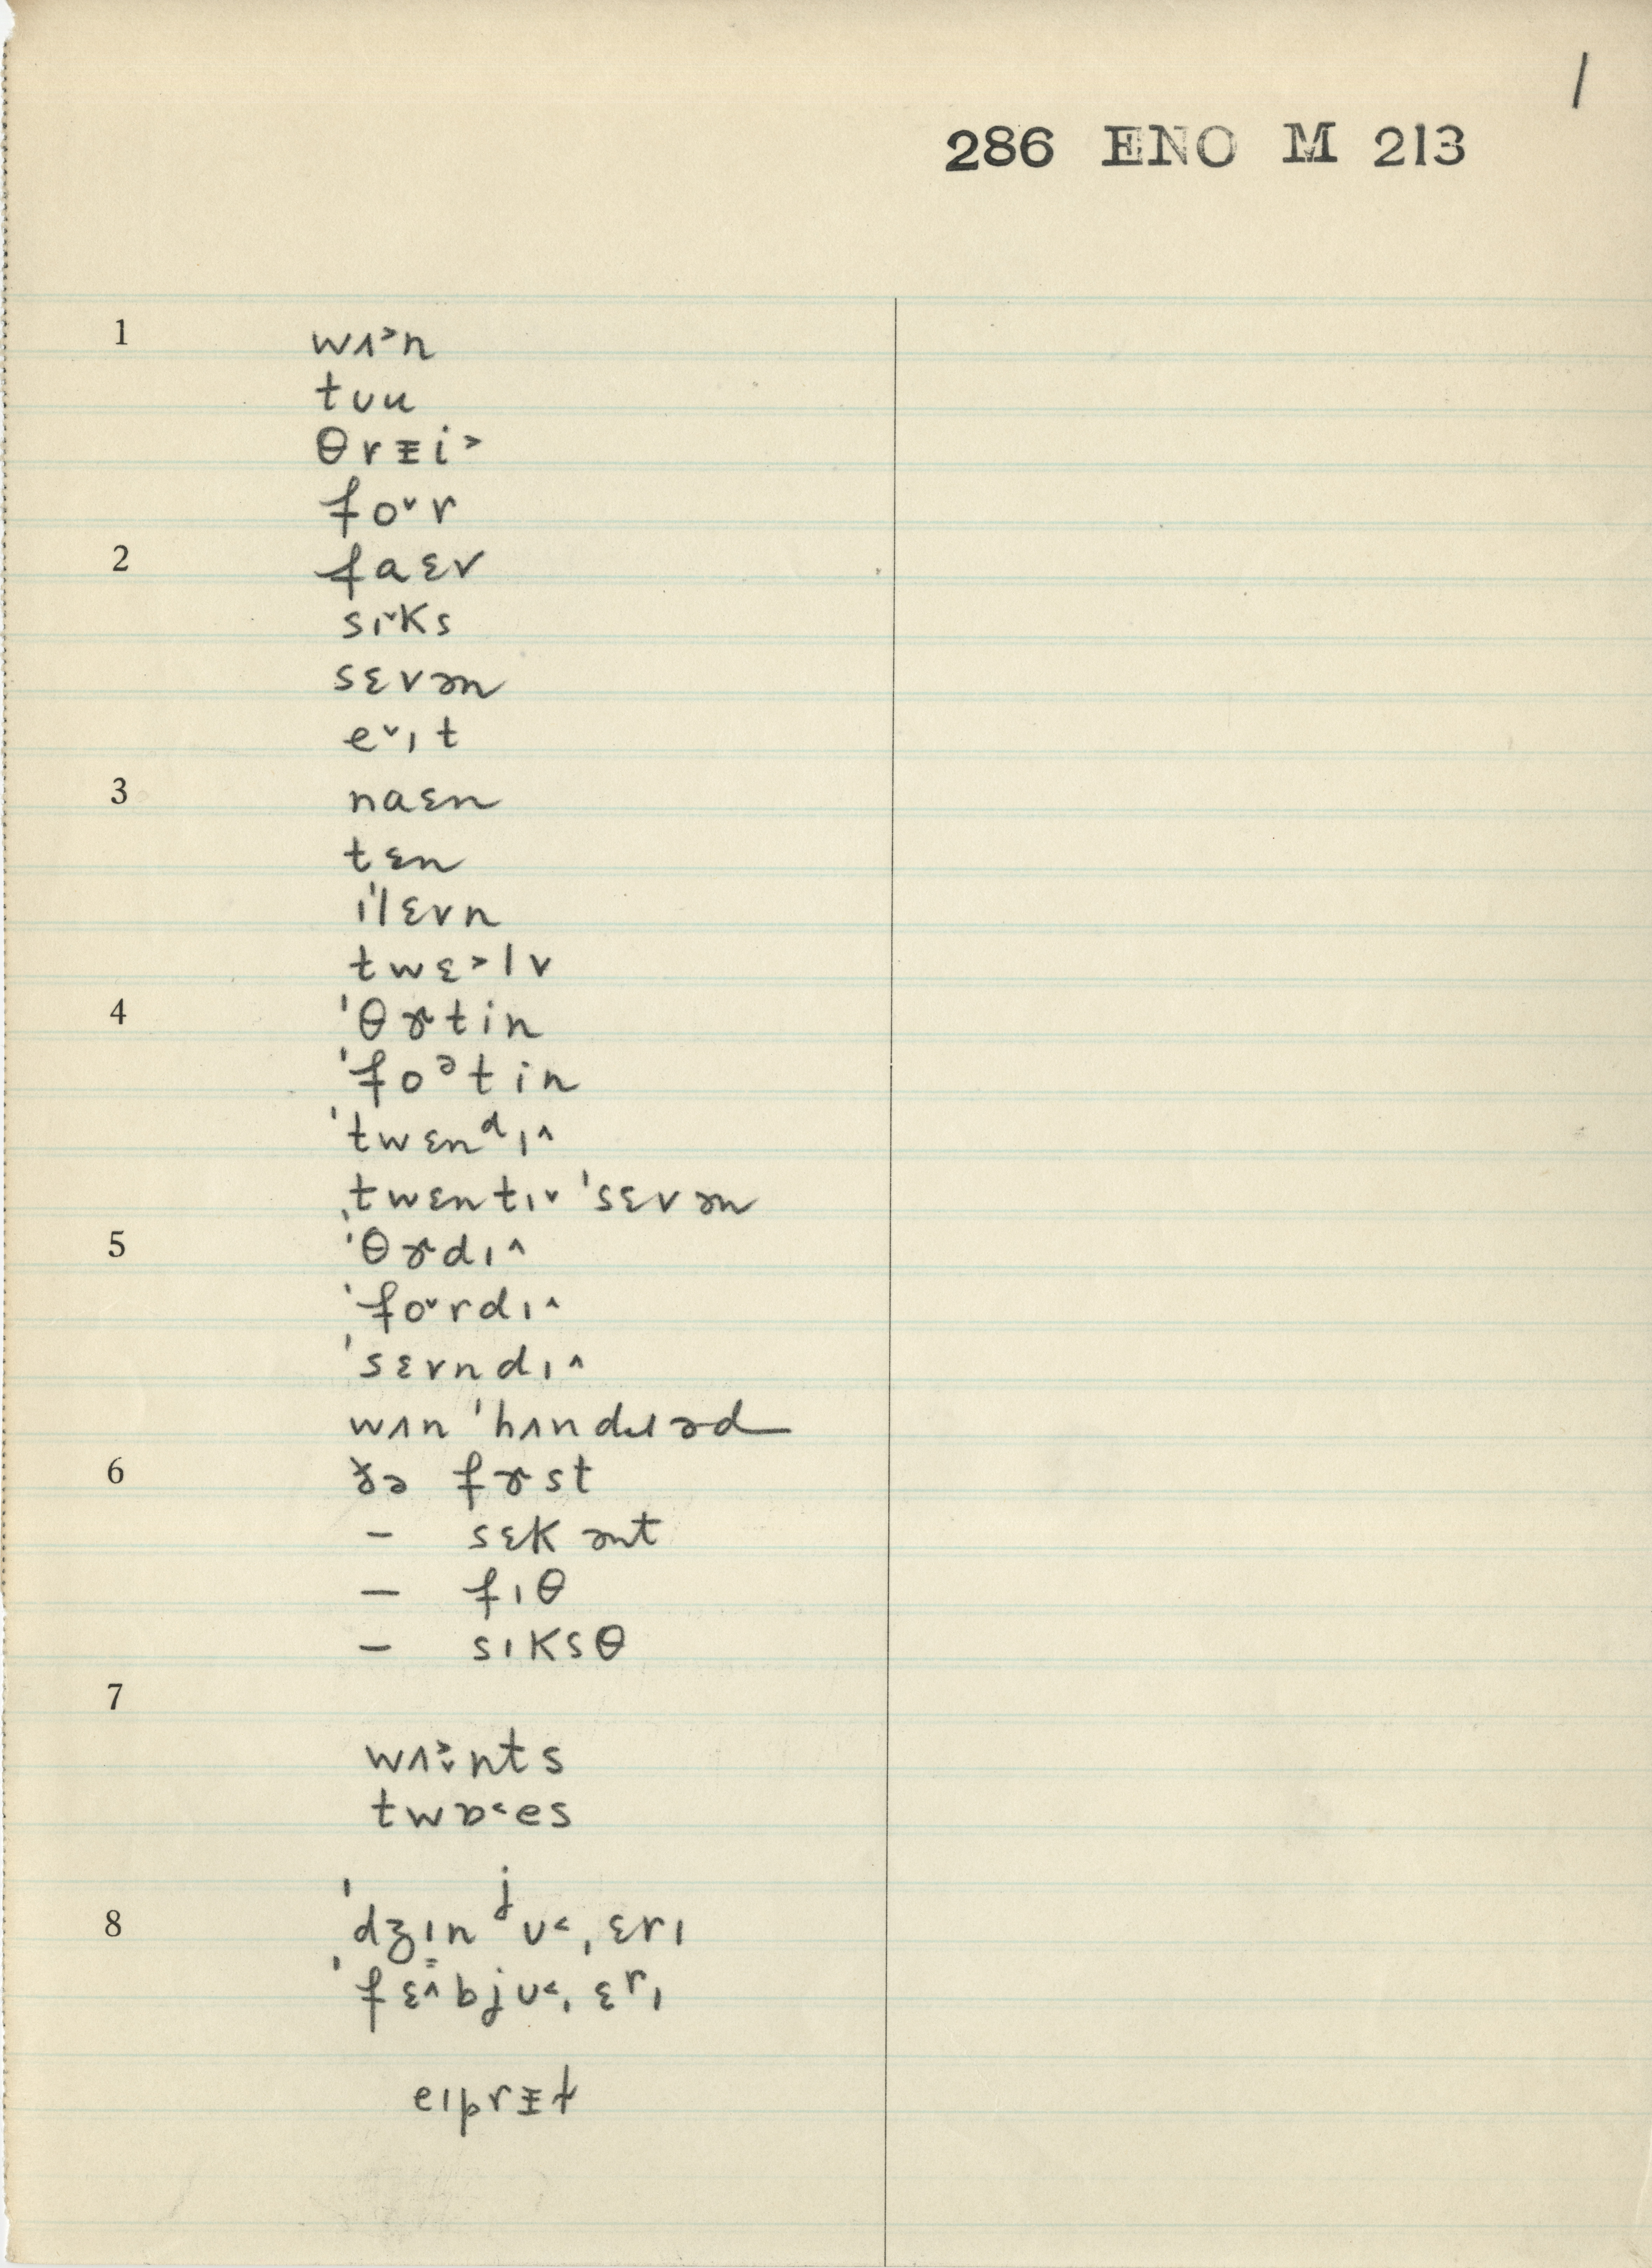 1
286 ENO M 213
1 wʌ˃n
tʊu
θrᵻi˃
fo˅r
2 faɛv
sɪ˅ks
sɛvən
e˅ɪt
3 naɛn
tɛn
ɪˈlɛvn
twɛ˃lv
4 ˈθɚtin
ˈfoᵊtin
ˈtwɛnᵈɪ˄
ˌtwɛntɪ˅ ˈsɛvən
5 ˈθɚdɪ˄
ˈfo˅rdɪ˄
ˈsɛvndɪ˄
wʌn ˈhʌndɹəd
6 ðə fɚst
– sɛkənt
– fɪθ
– sɪksθ
7
wʌ˃̬nts
twɒ˂es
8 ˈdʒɪnʲʊ˂ˌɛrɪ
ˈfɛ˄bjʊ˂ˌɛrɪ
eɪprᵻɫ